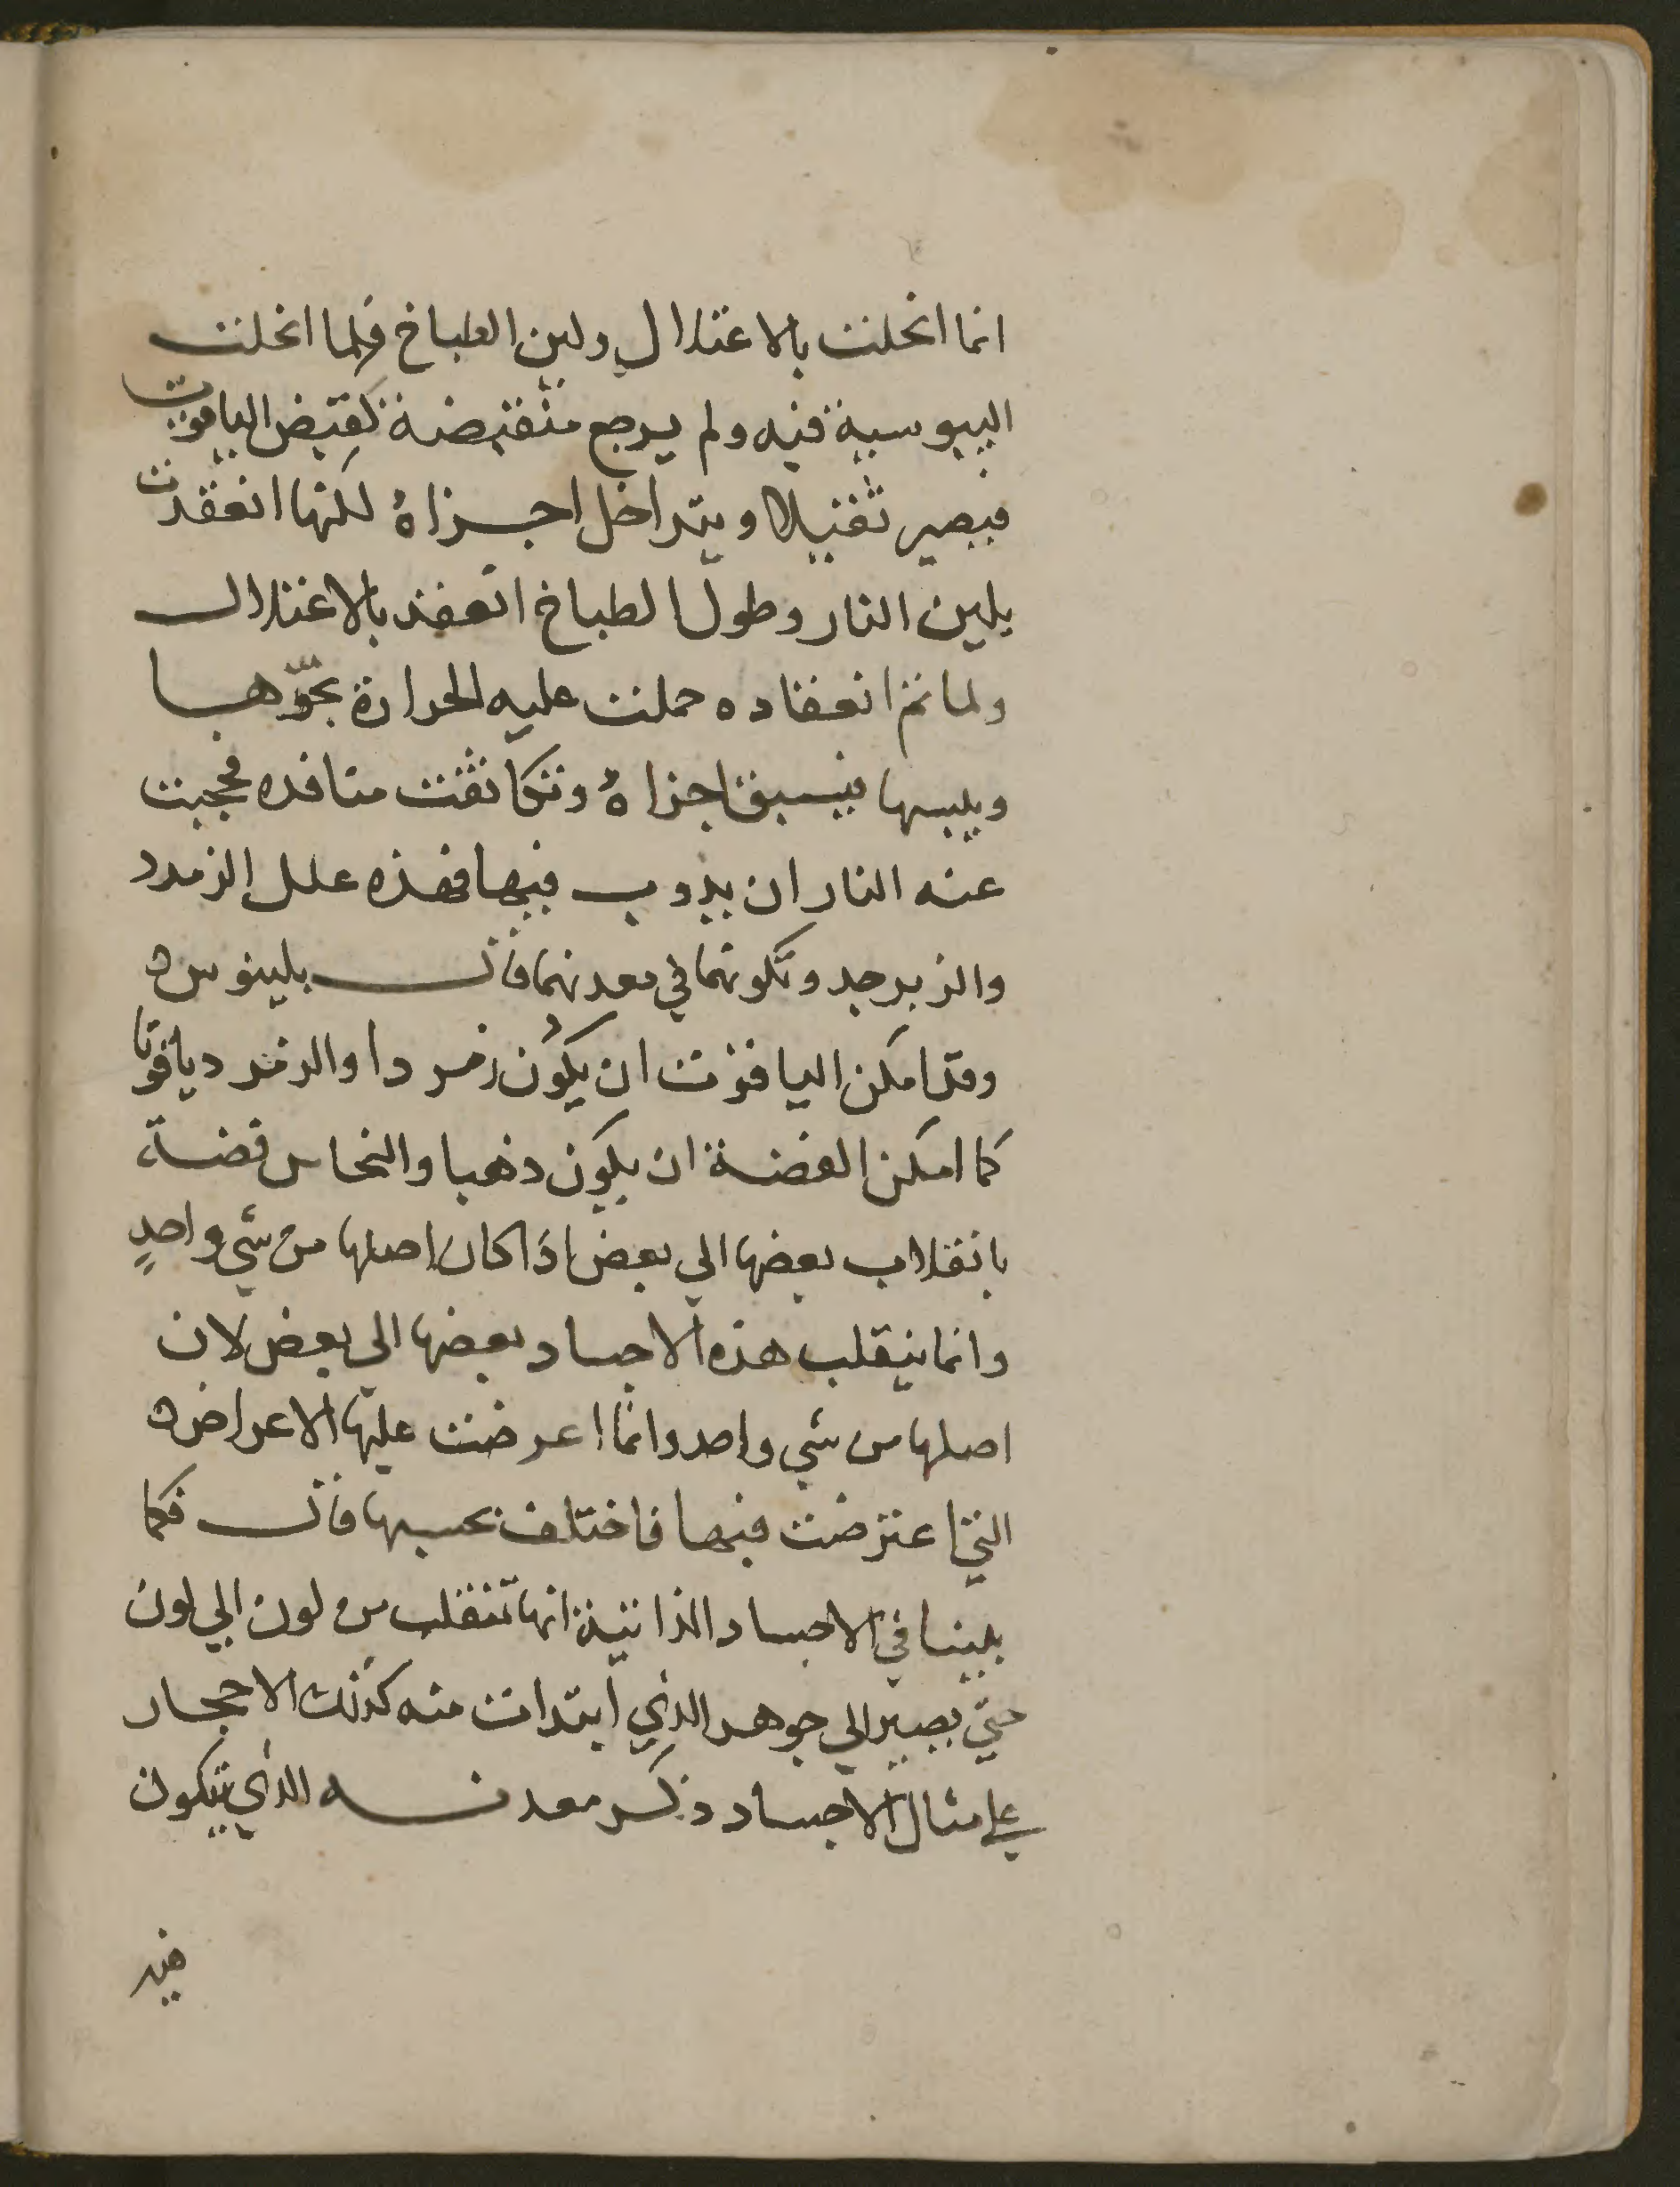 انما انحلت بالاعتدال ولين الطباخ فلما انحلت
اليبوسية فيه ولم يرجع منقبضة كقبض الياقوت
فيصير ثقيلا ويتداخل اجزاهٔ لكنها انعقدت
بلين النار وطول الطباخ انعقد بالاعتدال
ولما تم انعقاده حملت عليه الحرارة بحرّها
ويبسها اجزاهٔ وتكاثفت منافده فحجبت
عنه النار ان يذوب فيها فهذه علل الزمرد
والزبرجد وتكونهما في معدنهما قال بلينوس ه
وقد امكن الياقوت ان يكون زمردا والزمرد ياقوتا
كما امكن الفضة ان يكون ذهبا والنحاس فضة
بانقلاب بعضها الي بعض اذا كان اصلها من شي واحدٍ
وانما ينقلب هذه الاجساد بعضها الي بعض لان
اصلها من شي واحد وانما اعرضت عليها الاعراض ه
التي اعترضت فيها فاختلف بحسبها قال فكما
بينا في الاجساد الذائبة انها تنقلب من لون الي لون
حتي يصير الي جوهر الذي ابتدات منه كذلك الاحجار
علي مثال الاجساد ذكر معدنه الذي يتكون
فيه